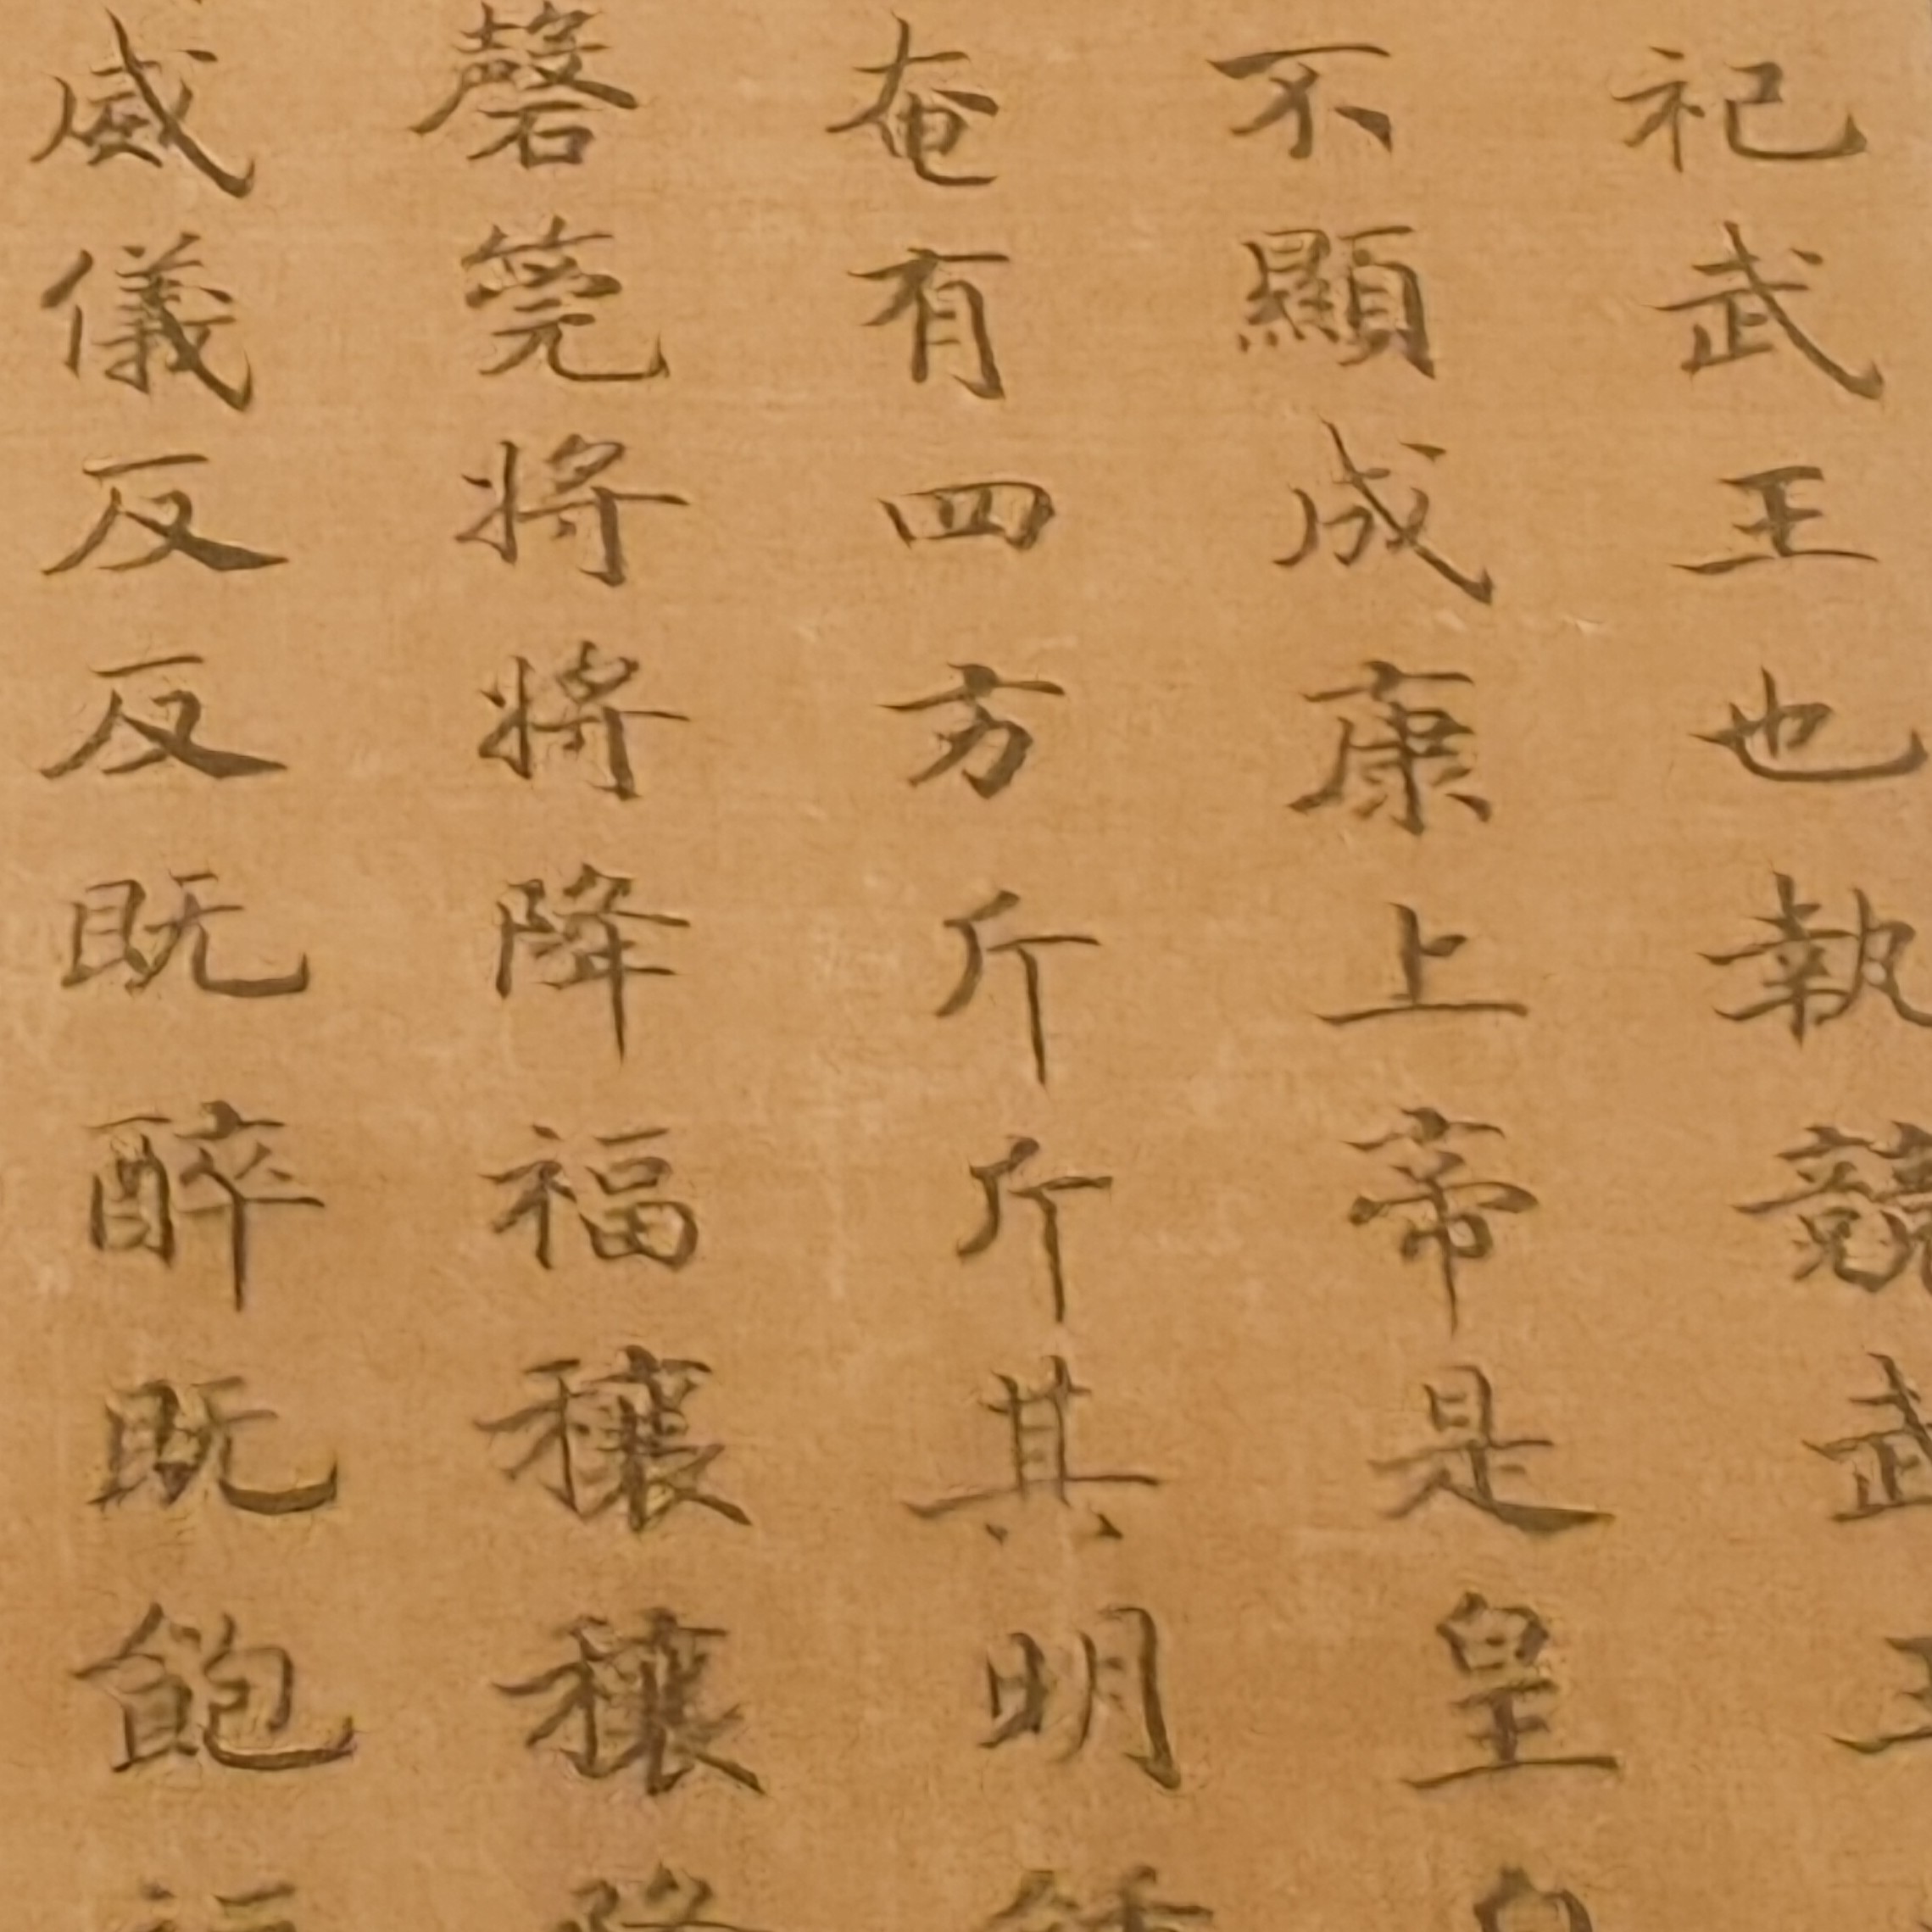 祀武王也執競武王
不顯成康上帝是皇
奄有四方斤斤其明
磬筦將將降福穰穰
威儀反反既醉既飽